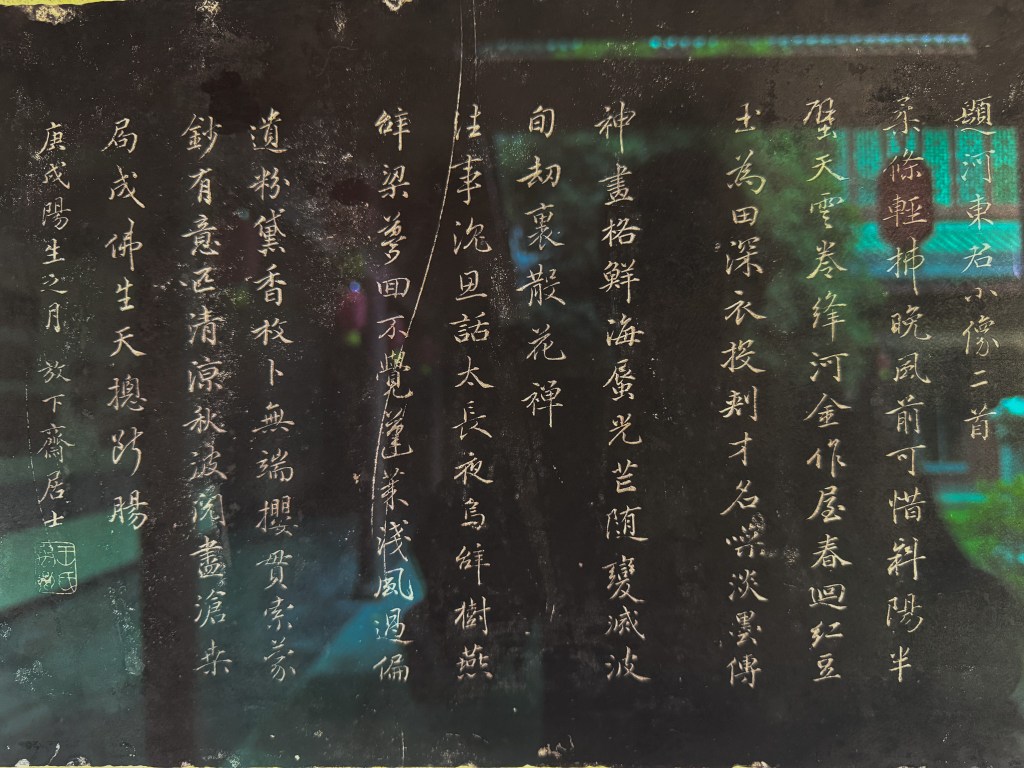 題河東君小像二首
柔條輕拂晚風前可惜斜陽半
壁天雲卷絳河金作屋春迴紅豆
玉為田深衣投刺才名噪淡墨傳
神畫格鮮海蜃光芒随變滅波
旬劫裏散花禅
往事沉思話太長夜烏辤樹燕
辤梁夢回不覺蓬萊淺風過偏
遺粉黛香枚卜無端攖貫索蒙
鈔有意匹清涼秋波閱盡滄桑
局成佛生天摠斷腸
庚戌陽生之月 放下齋居士